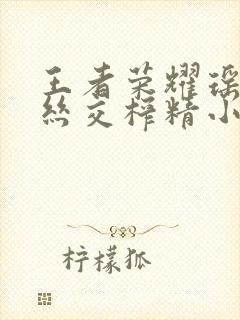 王者荣耀瑶
丝交榨精小
柠檬狐